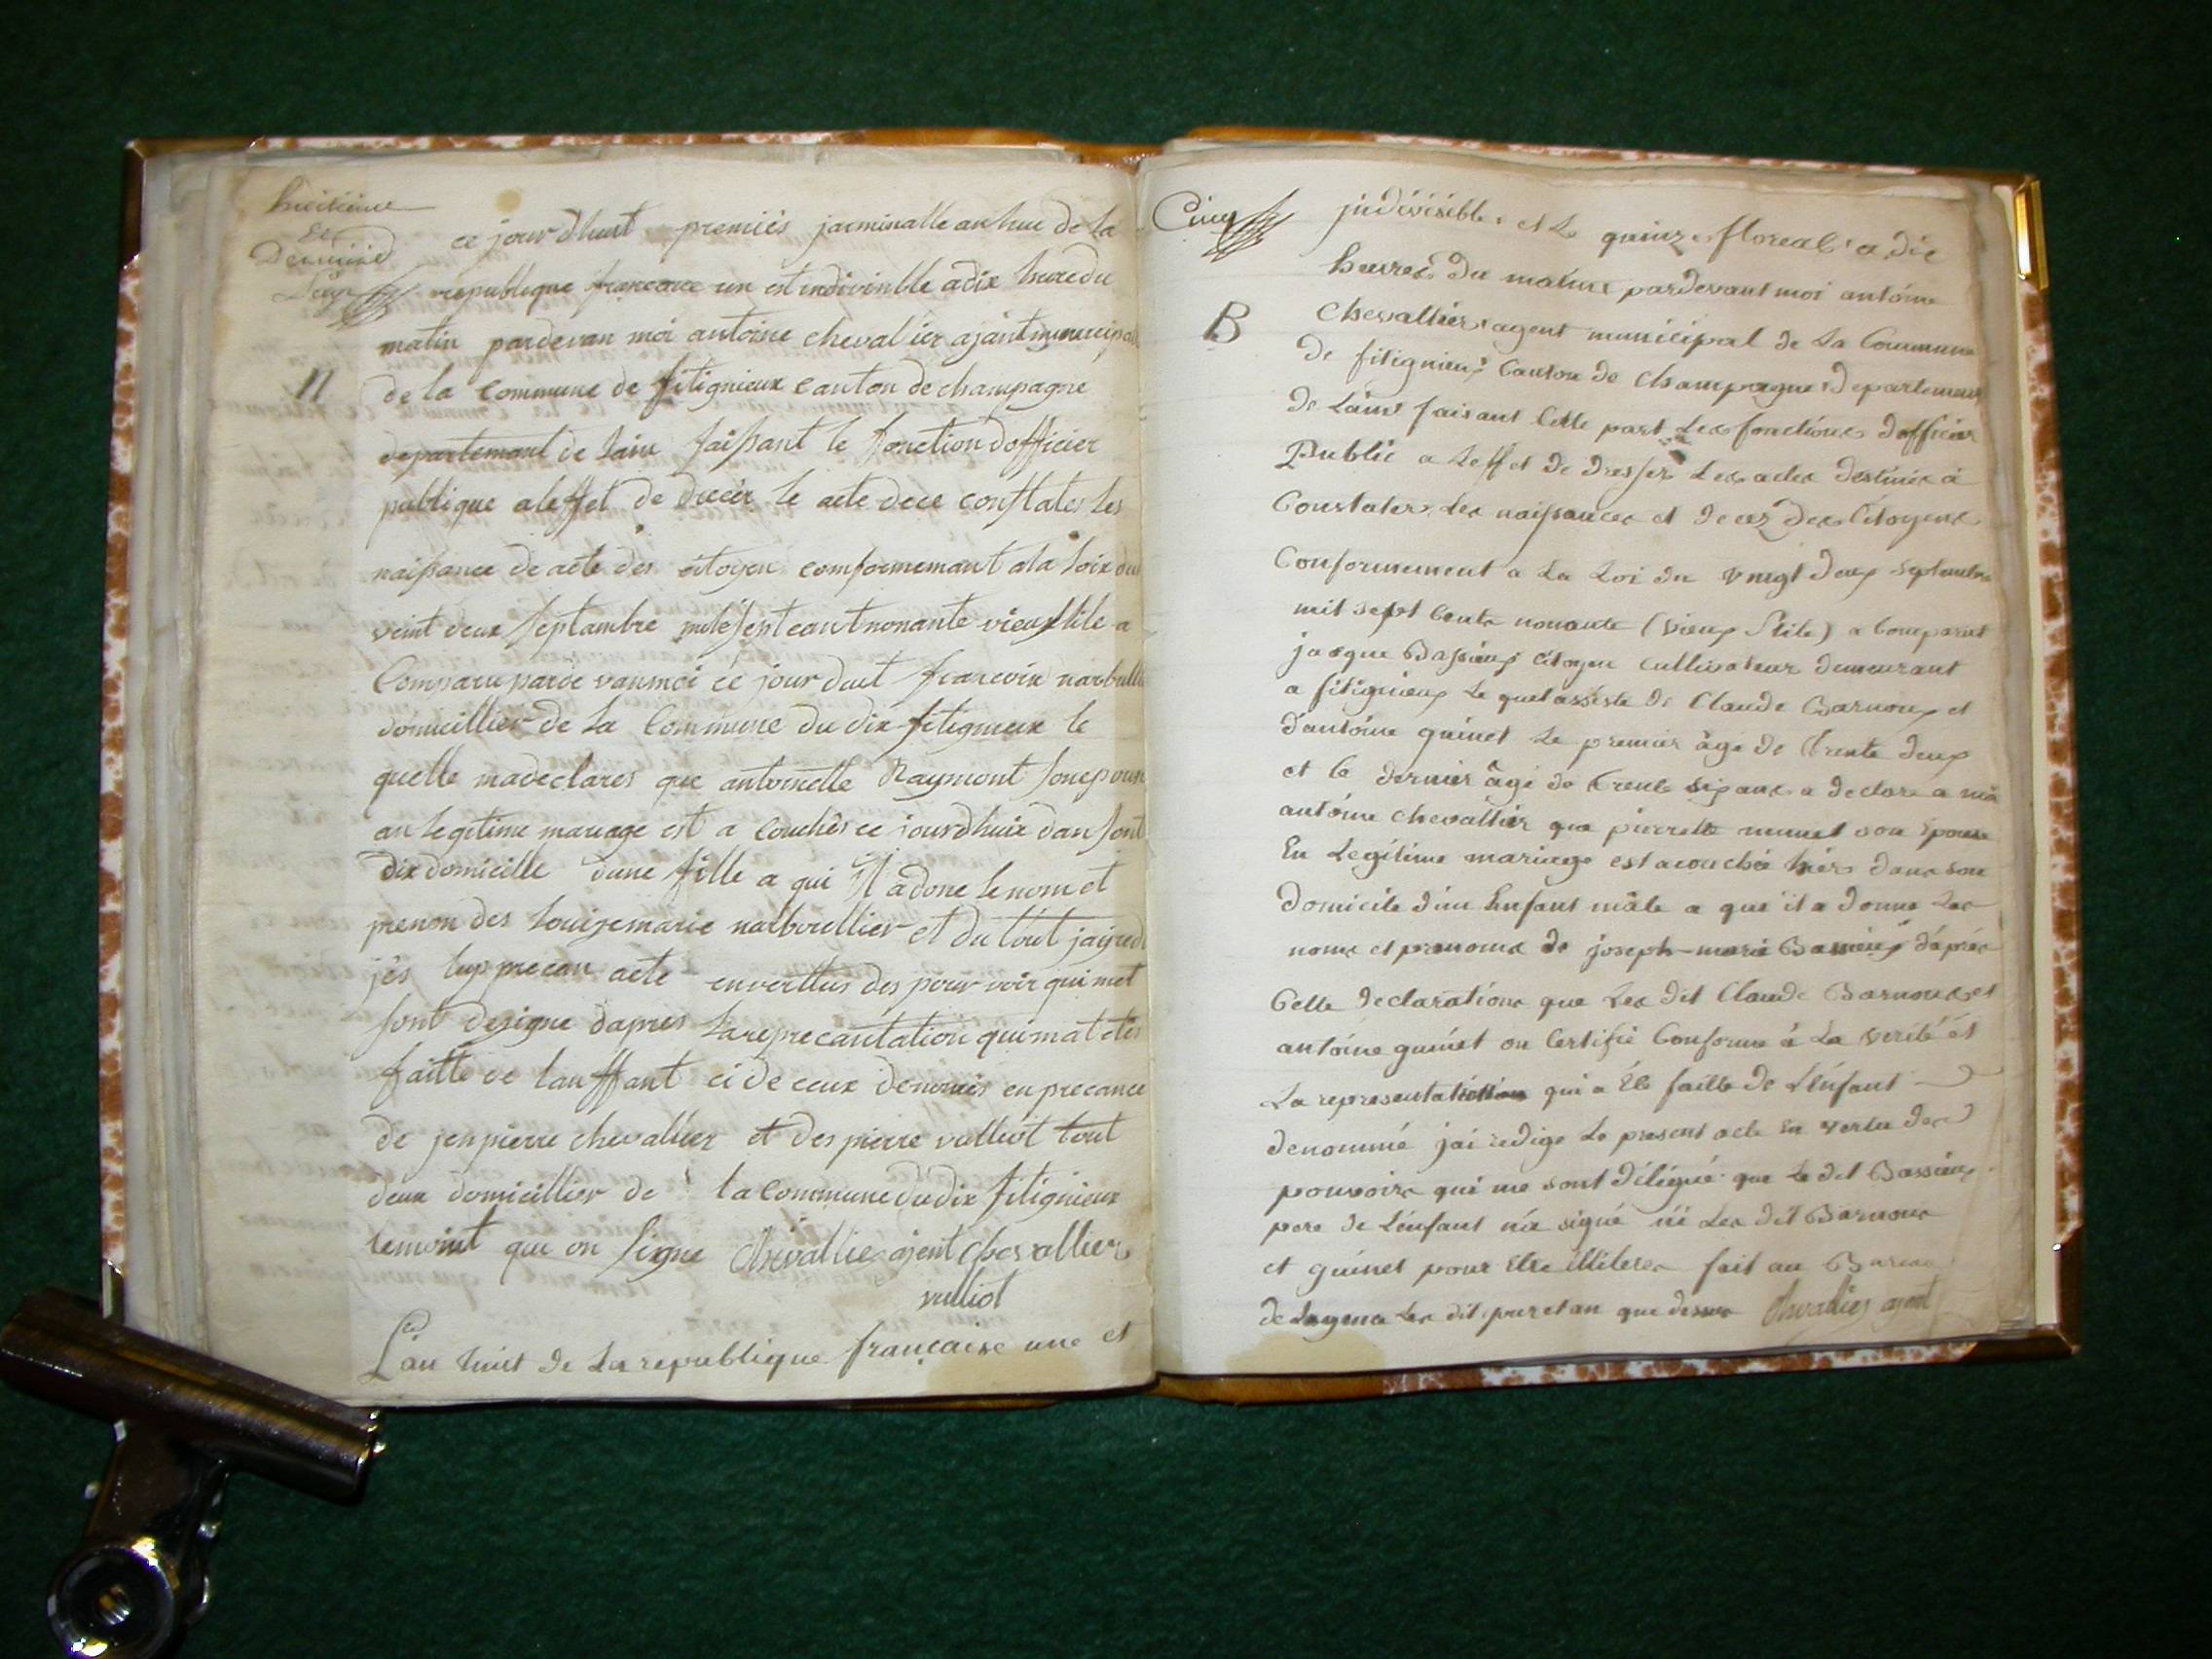 huitieme
et
Dernier
ce jourdhuit premies jarminalle an hue de la
republique francoace un est indivinble adix heure du
matin pardevan moi antoine chevalier ajant municipal
n
de la Commune de fitignieux canton de champagne
departemant de lain faissant le fonction dofficier
publique aleffet de decér le acte dece conftates les
naissance de acte des citogen comformemant ala loix du
veint deux septambre mile sept cant nonante vieux stile a
Comparu parde van moi ce jour duit francoix narbulli
domicillier de la Commune du dix fitignieux le
quelle madeclares que antoinette Raymont son epouse
an legitime mariage est a couchés ce jourdhuix dan sont
dix domicille dune fille a qui Il a done le nom et
prenon des louize marie narboullier et du tout jai redi
jés lup precan acte envertus des pour voir qui met
sont designe dapres la reprecantation qui mat etes
faitte de lanffant ci de ceux denomés en precance
de jenpierre chevallier et des pierre valliot tout
deux domicillier de la Commune du dix fitignieux
temoint que on signe Chevallie ajent Chevallier
vulliot
L'an huit de la republique française une et
Cinq
jndivisible et le quinze floreal a dix
heures du matin pardevant moi antoine
B
Chevallier agent municipal de la Commune
de fitignieux Canton de Champagne departement
de lain faisant Cette part les fonctions dofficier
Public a leffet de dresser les actes destinés à
Constater les naissances et decez des Citoyens
Conformement a la Loi du vingt deux septembre
mil sept Cents nonante (vieux Stile) a Comparut
jacque Bassieux Citoyen Cultivateur demeurant
a fitignieux le quel assisté de Claude Barnoux et
d'antoine guinet le premier âgé de trente deux
et le dernier âgé de trente six ans a declare a moi
antoine chevallier que pierrette munet son Epouse
En Legitime mariage est acouchée hier dans son
domicile d'un Enfant mâle a que il a donne les
noms et prenoms de joseph-marie Bassieux d'après
Cette declaration que les dit Claude Barnoux et
antoine guinet on Certifié Conforme à la verité et
La representation qui a été faitte de L'énfant
denommé j'ai redige le present acte en vertu des
pouvoirs qui me sont délégué que le dit Bassieux
pere de L'énfant n'a signé ni les dit Barnoux
et guinet pour Etre illiteres fait au Bureau
de Lagence les dit jour et an que dessus Chevallier ajent